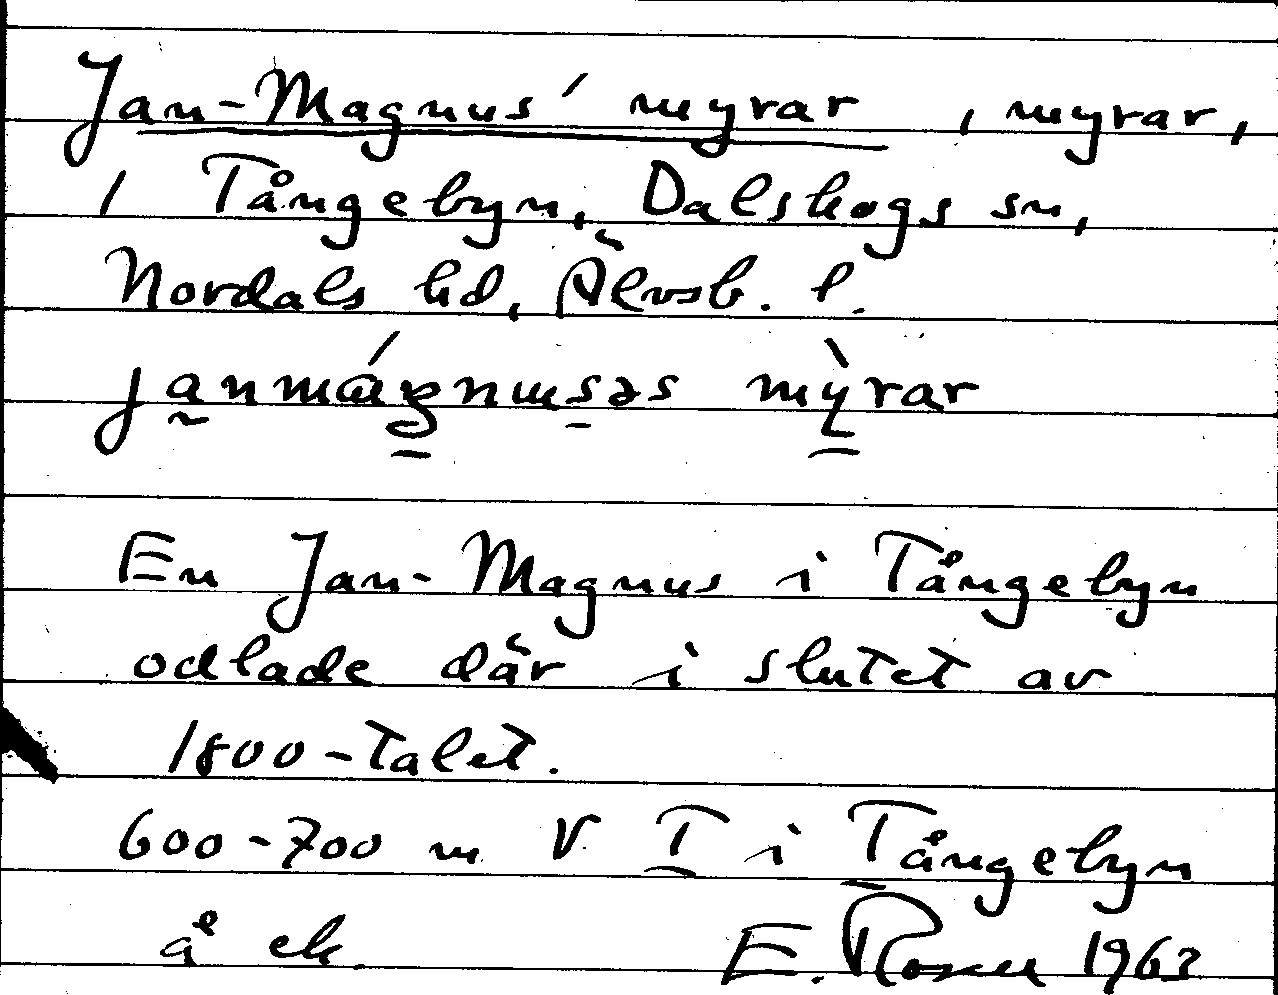 Jan-Magnus' myrar, myrar,
i Tångebyn, Dalskogs sn,
Nordals hd, Älvsb. l.
En Jan-Magnus i Tångebyn
odlade där i slutet av
1800-talet.
600-700 m V T i Tångebyn
å ek. E. Rosell 1963